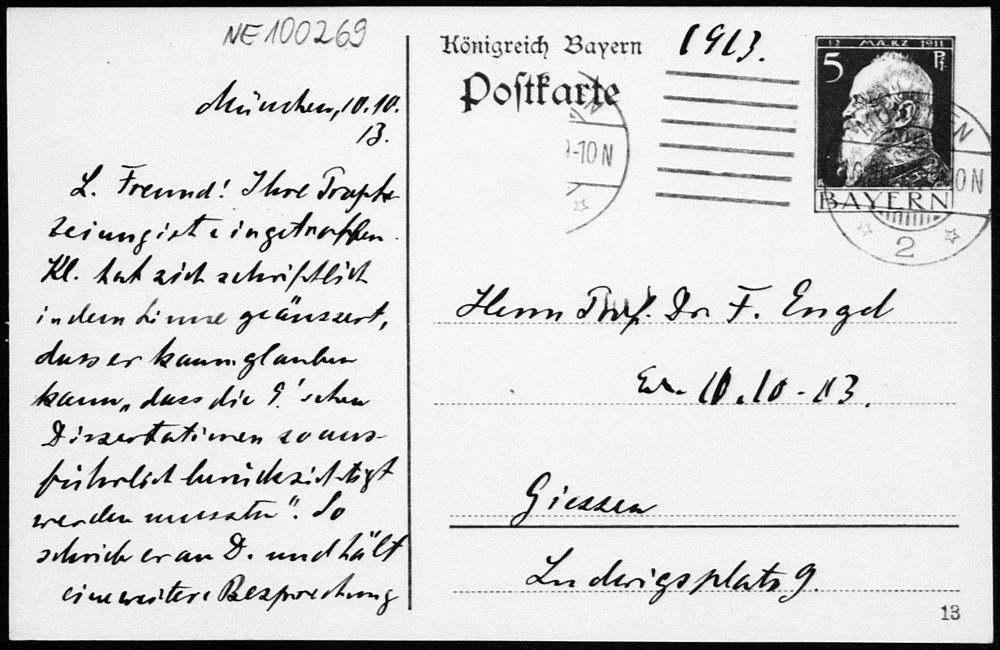 NE100269
München, 10.10.
13.
L. Freund! Ihre
ist eingetroffen.
Kl. hat sich schriftlich
in dem Sinne geäussert,
dass er kaum glauben
kann „dass die G.'schen
Dissertationen so aus-
führlich berücksichtigt
werden mussten". So
schrieb er an D. und hält
eine weitere Besprechung
Königreich Bayern
Postkarte
1913.
12 MÄRZ 1911
5 Pf
BAYERN
MÜNCHEN
9-10N
2
Herrn Prof. Dr. F. Engel
10.10-13.
Giessen
Ludwigsplatz 9.
13